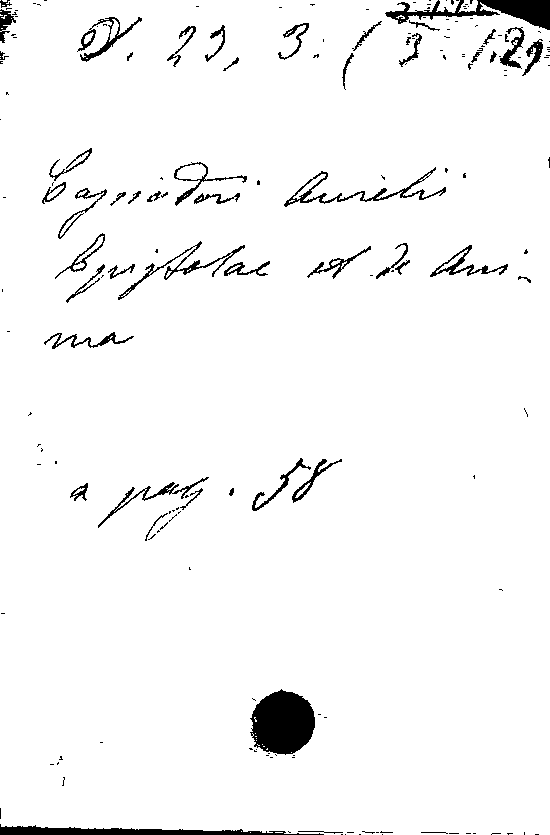 D. 23, 3. (3. 1.29
Cassiodori Aurelii
Epistolae et de Ani-
ma
a pag. 58